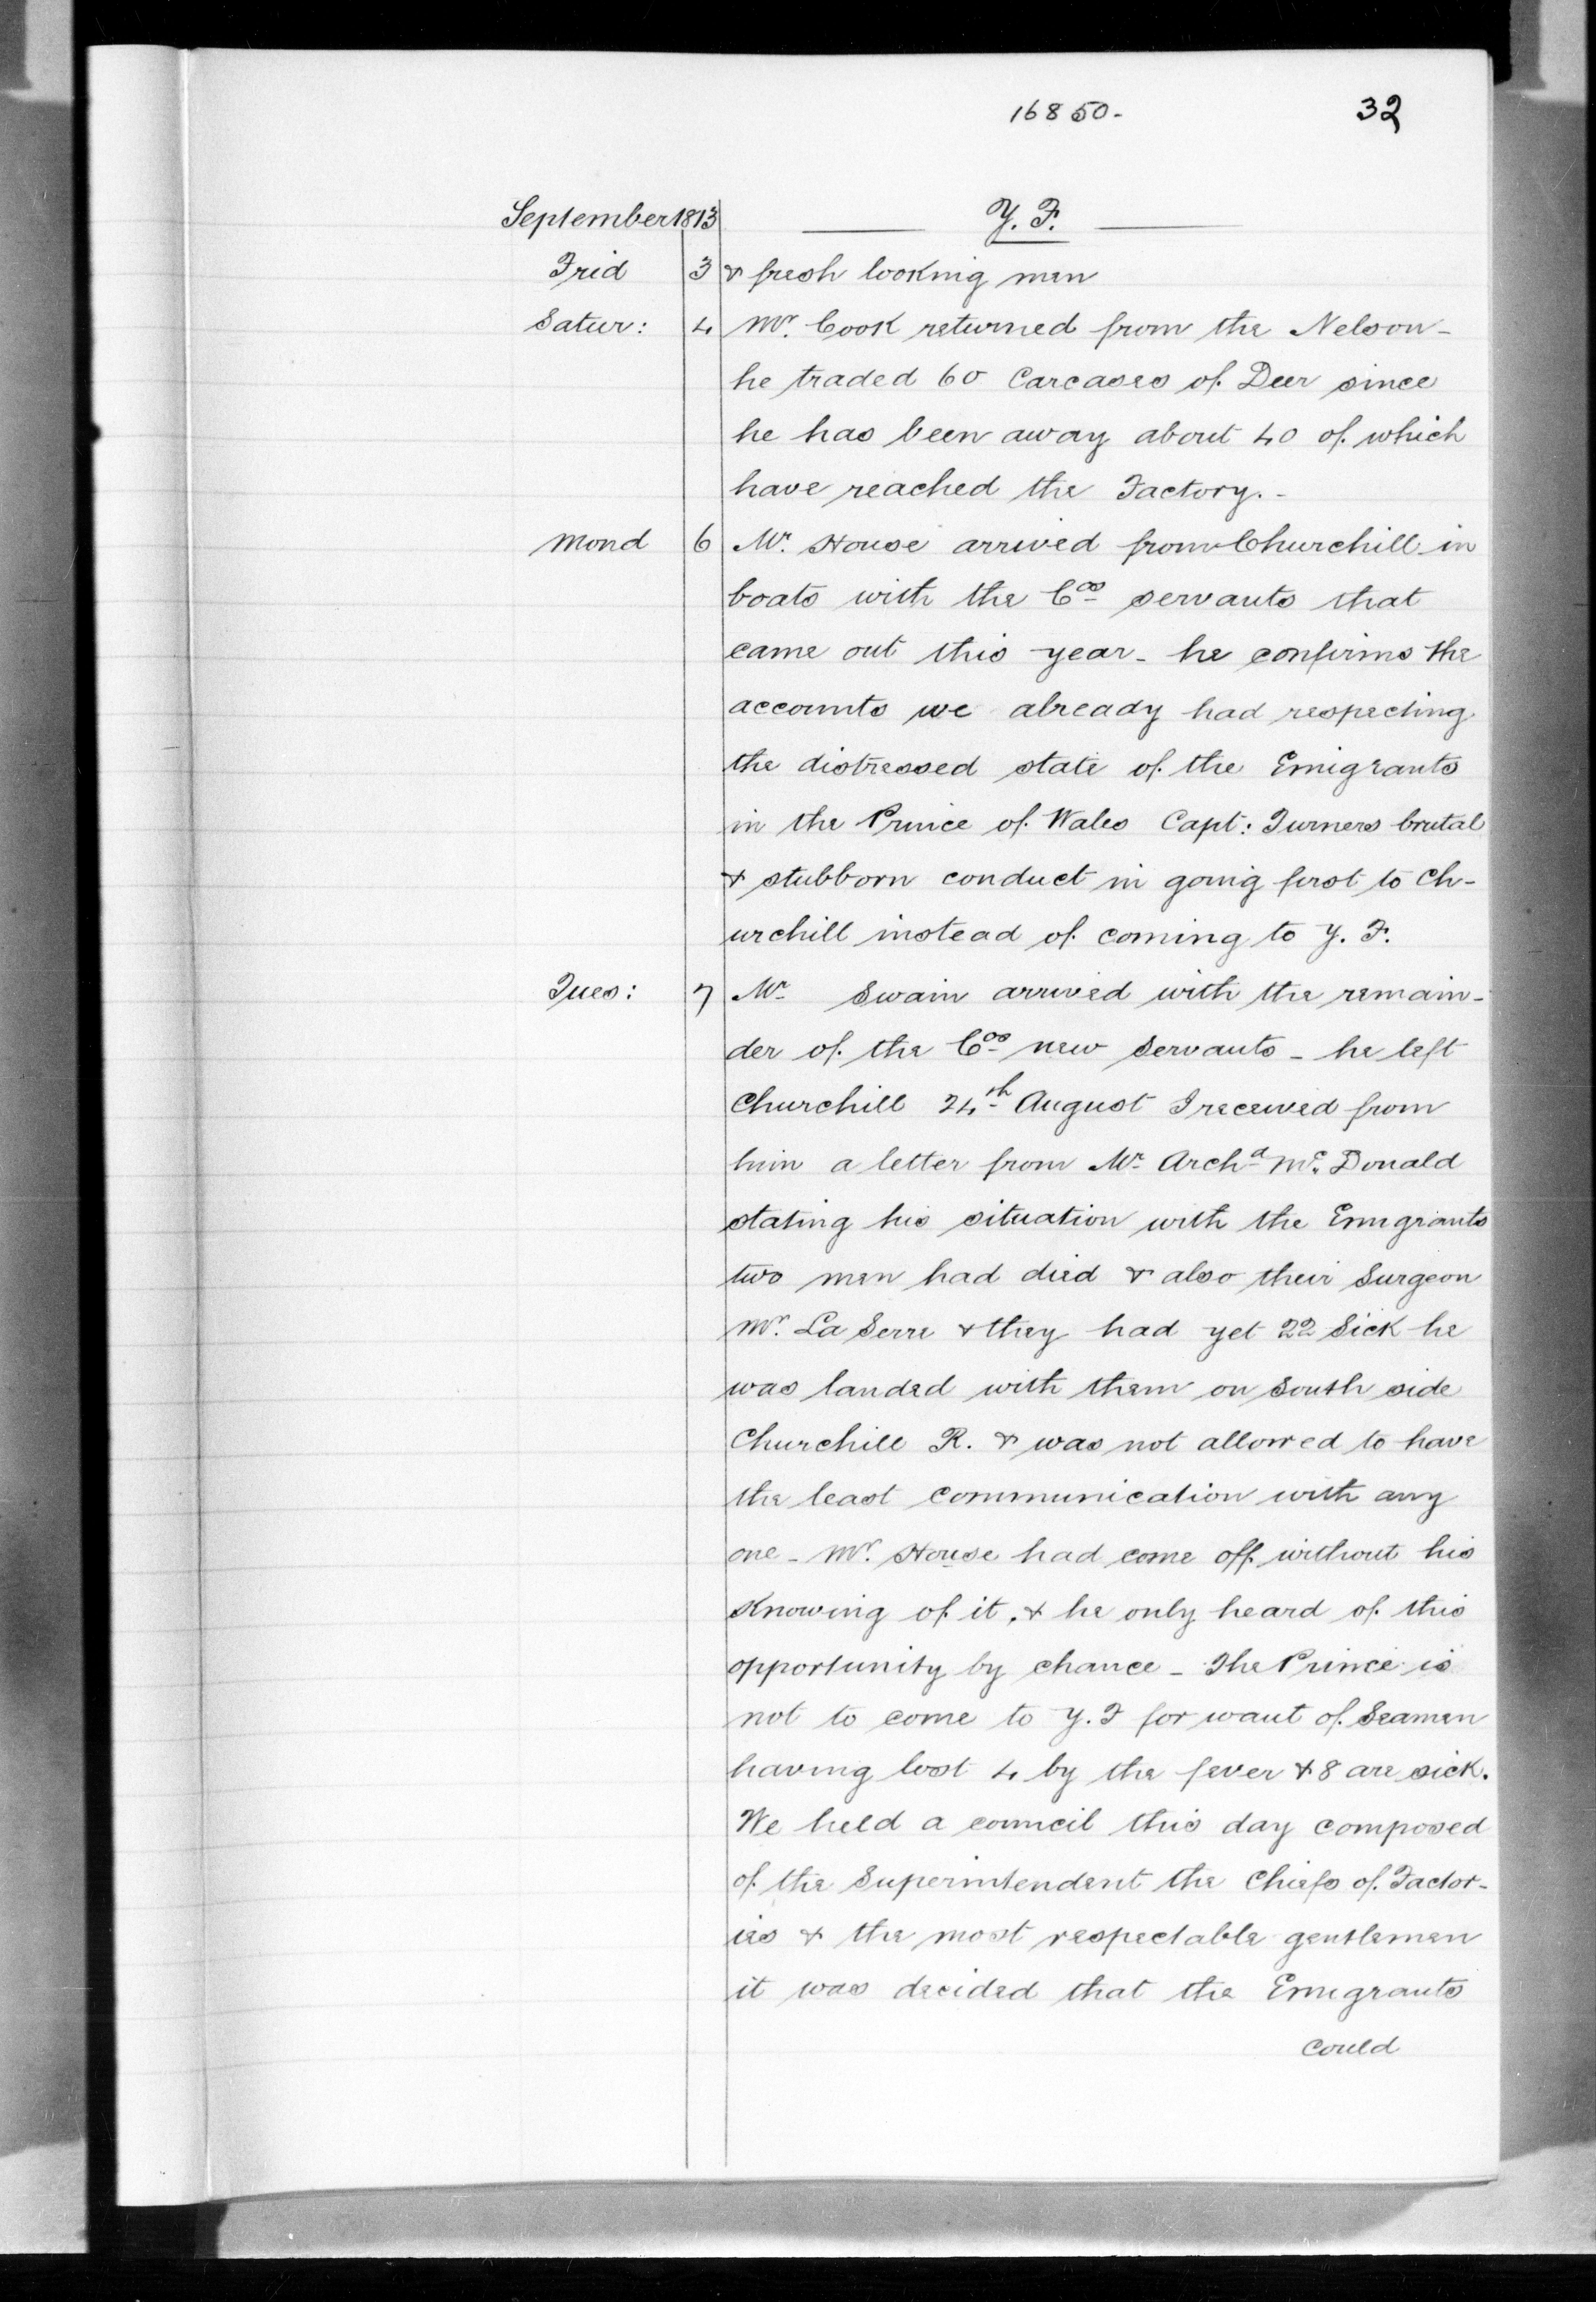 16850-
32
September 1813 Y. F.
Frid 3 & fresh looking men
Satur: 4 Mr. Cook returned from the Nelson-
he traded 60 Carcases of Deer since
he has been away about 40 of which
have reached the Factory.-
Mond 6 Mr. House arrived from Churchill in
boats with the Cos servants that
came out this year- he confirms the
accounts we already had respecting
the distressed state of the Emigrants
in the Prince of Wales Capt: Turners brutal
& stubborn conduct in going first to Ch-
urchill instead of coming to Y. F.
Tues: 7 Mr Swain arrived with the remain-
der of the Cos new Servants - he left
Churchill 24th August I received from
him a letter from Mr Archd Mc Donald
stating his situation with the Emigrants
two men had died & also their Surgeon
Mr. La Serre & they had yet 22 Sick he
was landed with them on South side
Churchill R. & was not allowed to have
the least communication with any
one - Mr. House had come off without his
Knowing of it, & he only heard of this
opportunity by chance - The Prince is
not to come to Y. F for want of Seamen
having lost 4 by the fever & 8 are sick.
We held a council this day composed
of the Superintendent the Chiefs of Factor-
ies & the most respectable gentlemen
it was decided that the Emigrants
could